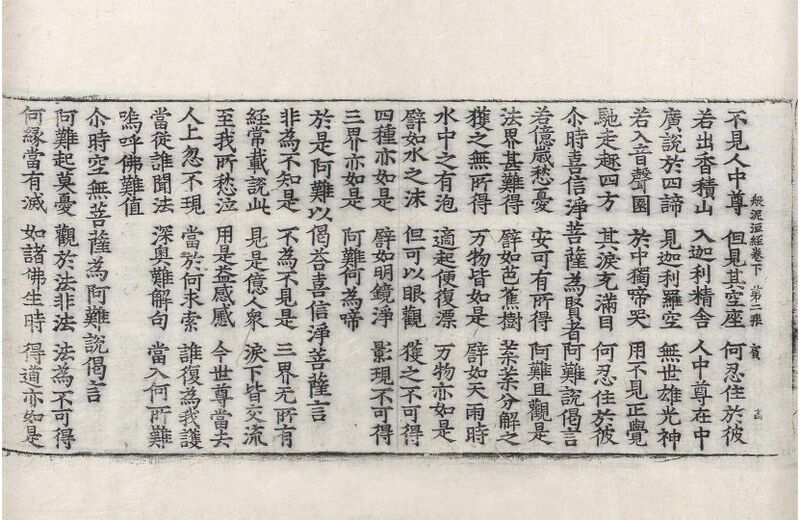 般泥洹經卷下 第二張 賓 高
不見人中尊 但見其空座 何忍住於彼
若出香積山 入迦利精舍 人中尊在中
廣說於四諦 見迦利羅空 無世雄光神
若入音聲園 於中獨啼哭 用不見正覺
馳走趣四方 其淚充滿目 何忍住於彼
尒時喜信淨菩薩為賢者阿難說偈言
若億歲愁憂 安可有所得 阿難且觀是
法界甚難得 譬如芭蕉樹 葉葉分解之
獲之無所得 万物皆如是 譬如天雨時
水中之有泡 適起便復漂 万物亦如是
譬如水之沫 但可以眼觀 獲之不可得
四種亦如是 譬如明鏡淨 影現不可得
三界亦如是 阿難何為啼
於是阿難以偈荅喜信淨菩薩言
非為不知是 不為不見是 三界无所有
經常載說此 見是億人衆 淚下皆交流
至我所愁泣 用是益感感 今世尊當去
人上忽不現 當於何求索 誰復為我護
當從誰聞法 深奧難解句 當入何所難
嗚呼佛難值
尒時空無菩薩為阿難說偈言
阿難起莫憂 觀於法非法 法為不可得
何緣當有滅 如諸佛生時 得道亦如是